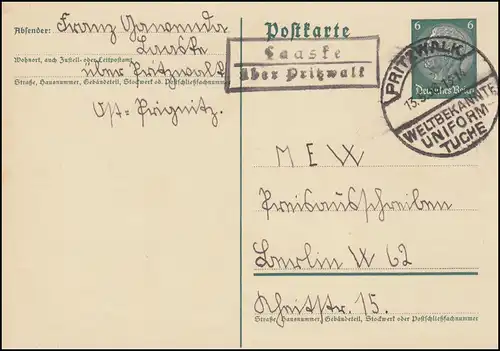 Absender: Franz Gawenda
Laaske
Wohnort, auch Zustell- oder Leitpostamt
über Pritzwalk
Straße, Hausnummer, Gebäudeteil, Stockwerk od. Postschließfachnummer
Ost-Prignitz.
Postkarte
Laaske
über Pritzwalk
6 6
Deutsches Reich
PRITZWALK
WELTBEKANNTE
UNIFORM-
TUCHE
MEW
Preisausschreiben
Berlin W 62
15.
Straße, Hausnummer, Gebäudeteil, Stockwerk oder Postschließfachnummer